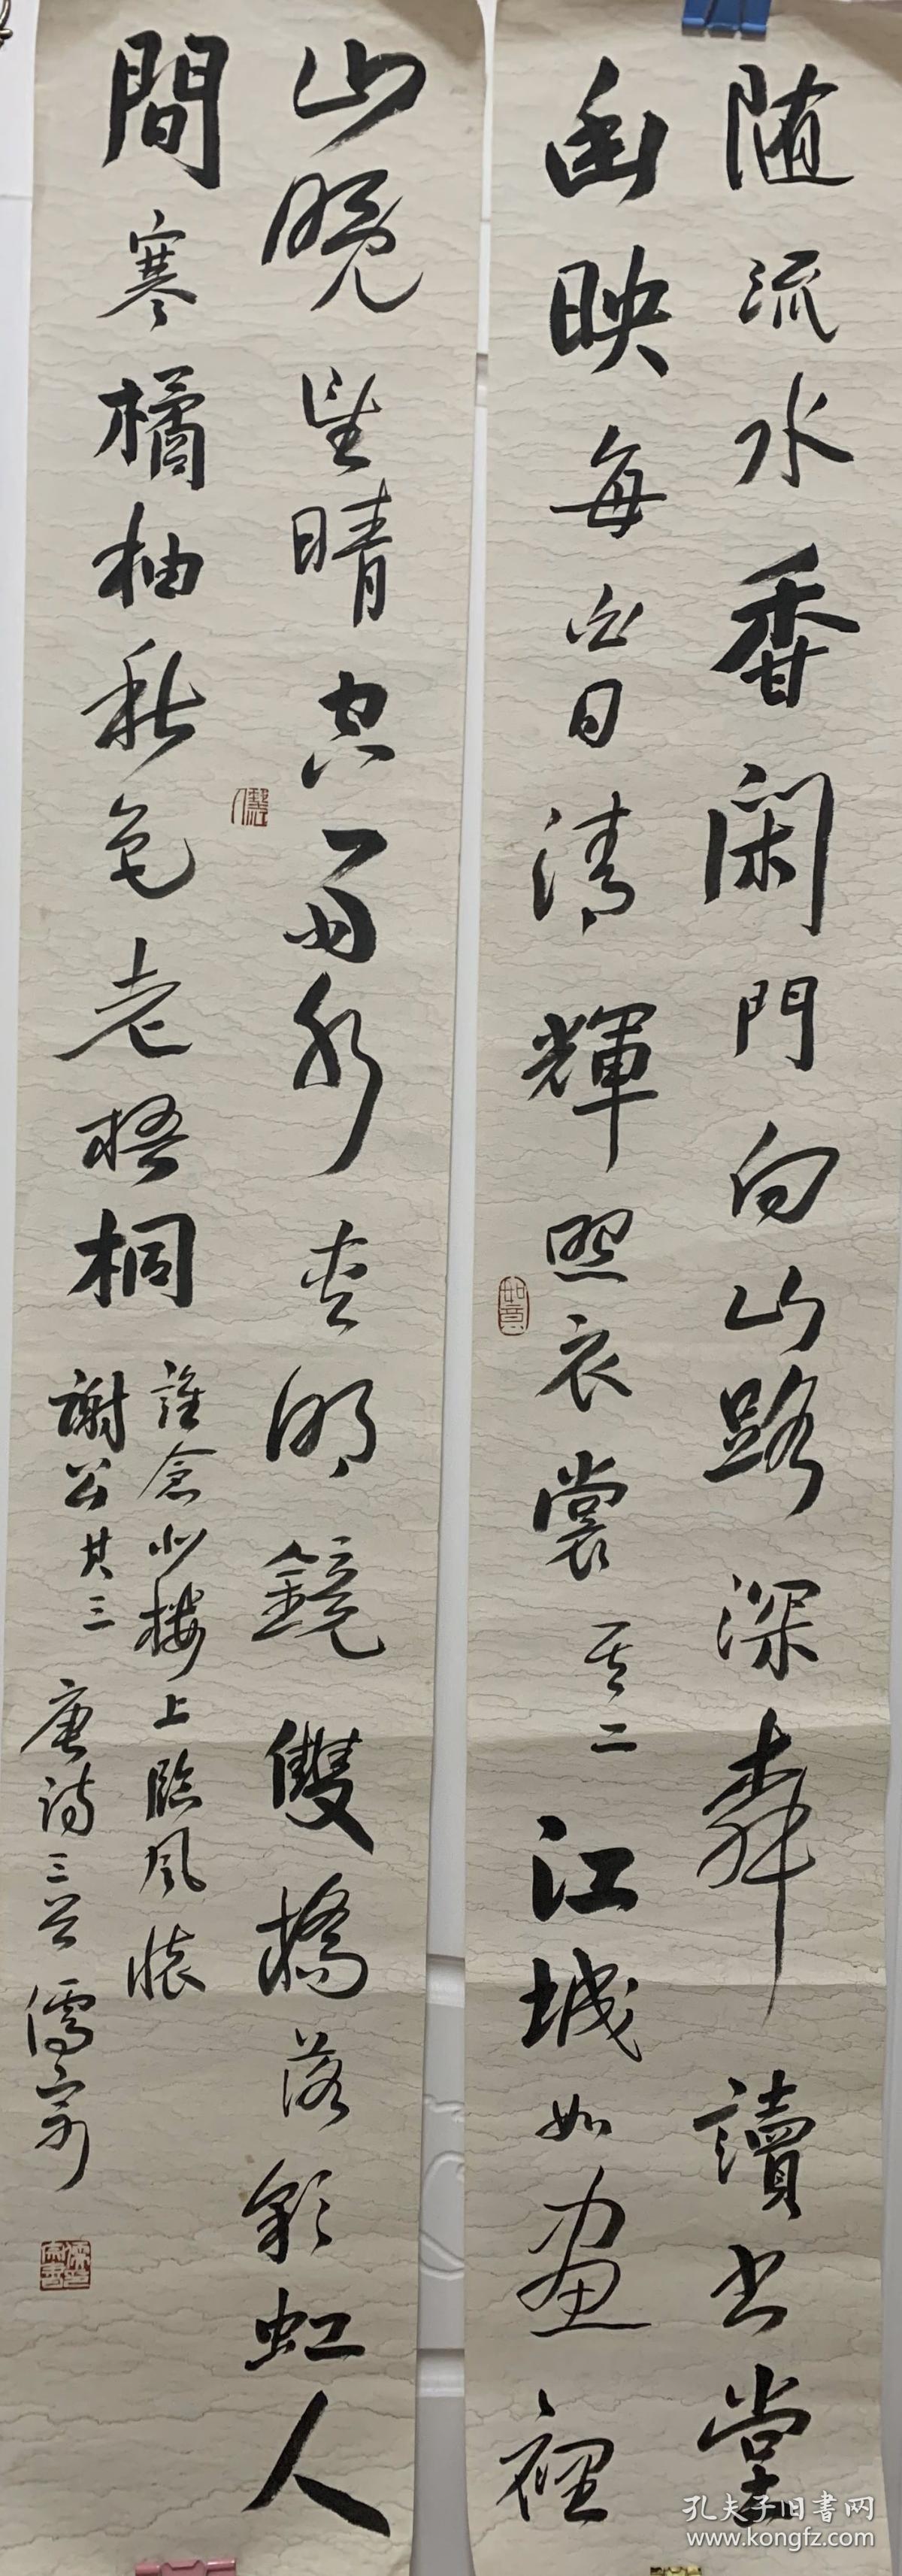 随流水香閑門向山路深柳讀书堂
幽映每白日清輝照衣裳其二江城如畫裡
山晚望晴空兩水夾明鏡雙橋落彩虹人
間寒橘柚秋色老梧桐
誰念北楼上臨風懷
謝公其三
唐詩三首儒
如意
孔夫子旧書网
www.kongfz.com